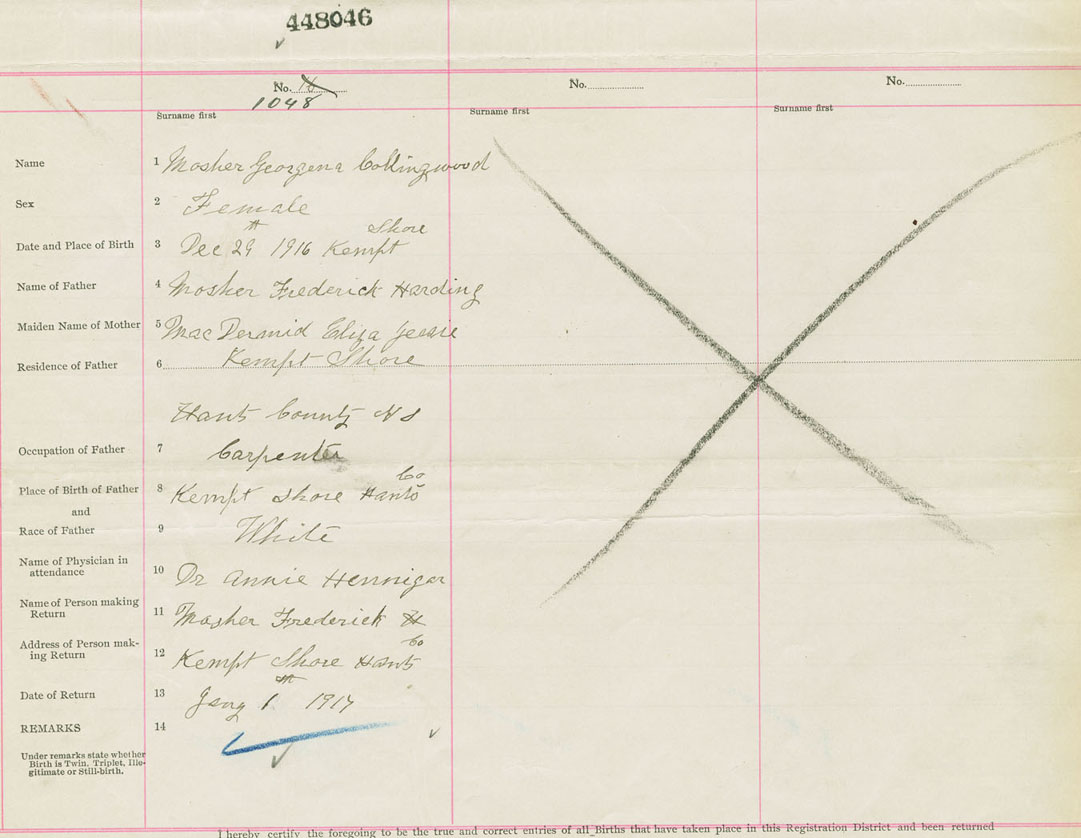 448046
No. 16 No. No.
1048
Surname first Surname first Surname first
Name 1 Mosher Georgena Collingwood
Sex 2 Female
Date and Place of Birth 3 Dec 29th 1916 Kempt Shore
Name of Father 4 Mosher Frederick Harding
Maiden Name of Mother 5 MacDermid Eliza Jessie
Residence of Father 6 Kempt Shore
Hants County NS
Occupation of Father 7 Carpenter
Place of Birth of Father 8 Kempt Shore Hants Co
and
Race of Father 9 White
Name of Physician in
attendance 10 Dr Annie Hennigar
Name of Person making
Return 11 Mosher Frederick H
Address of Person mak-
ing Return 12 Kempt Shore Hants Co
Date of Return 13 Jany 1st 1917
REMARKS 14
Under remarks state whether
Birth is Twin, Triplet, Ille-
gitimate or Still-birth.
I hereby certify the foregoing to be the true and correct entries of all Births that have taken place in this Registration District and been returned